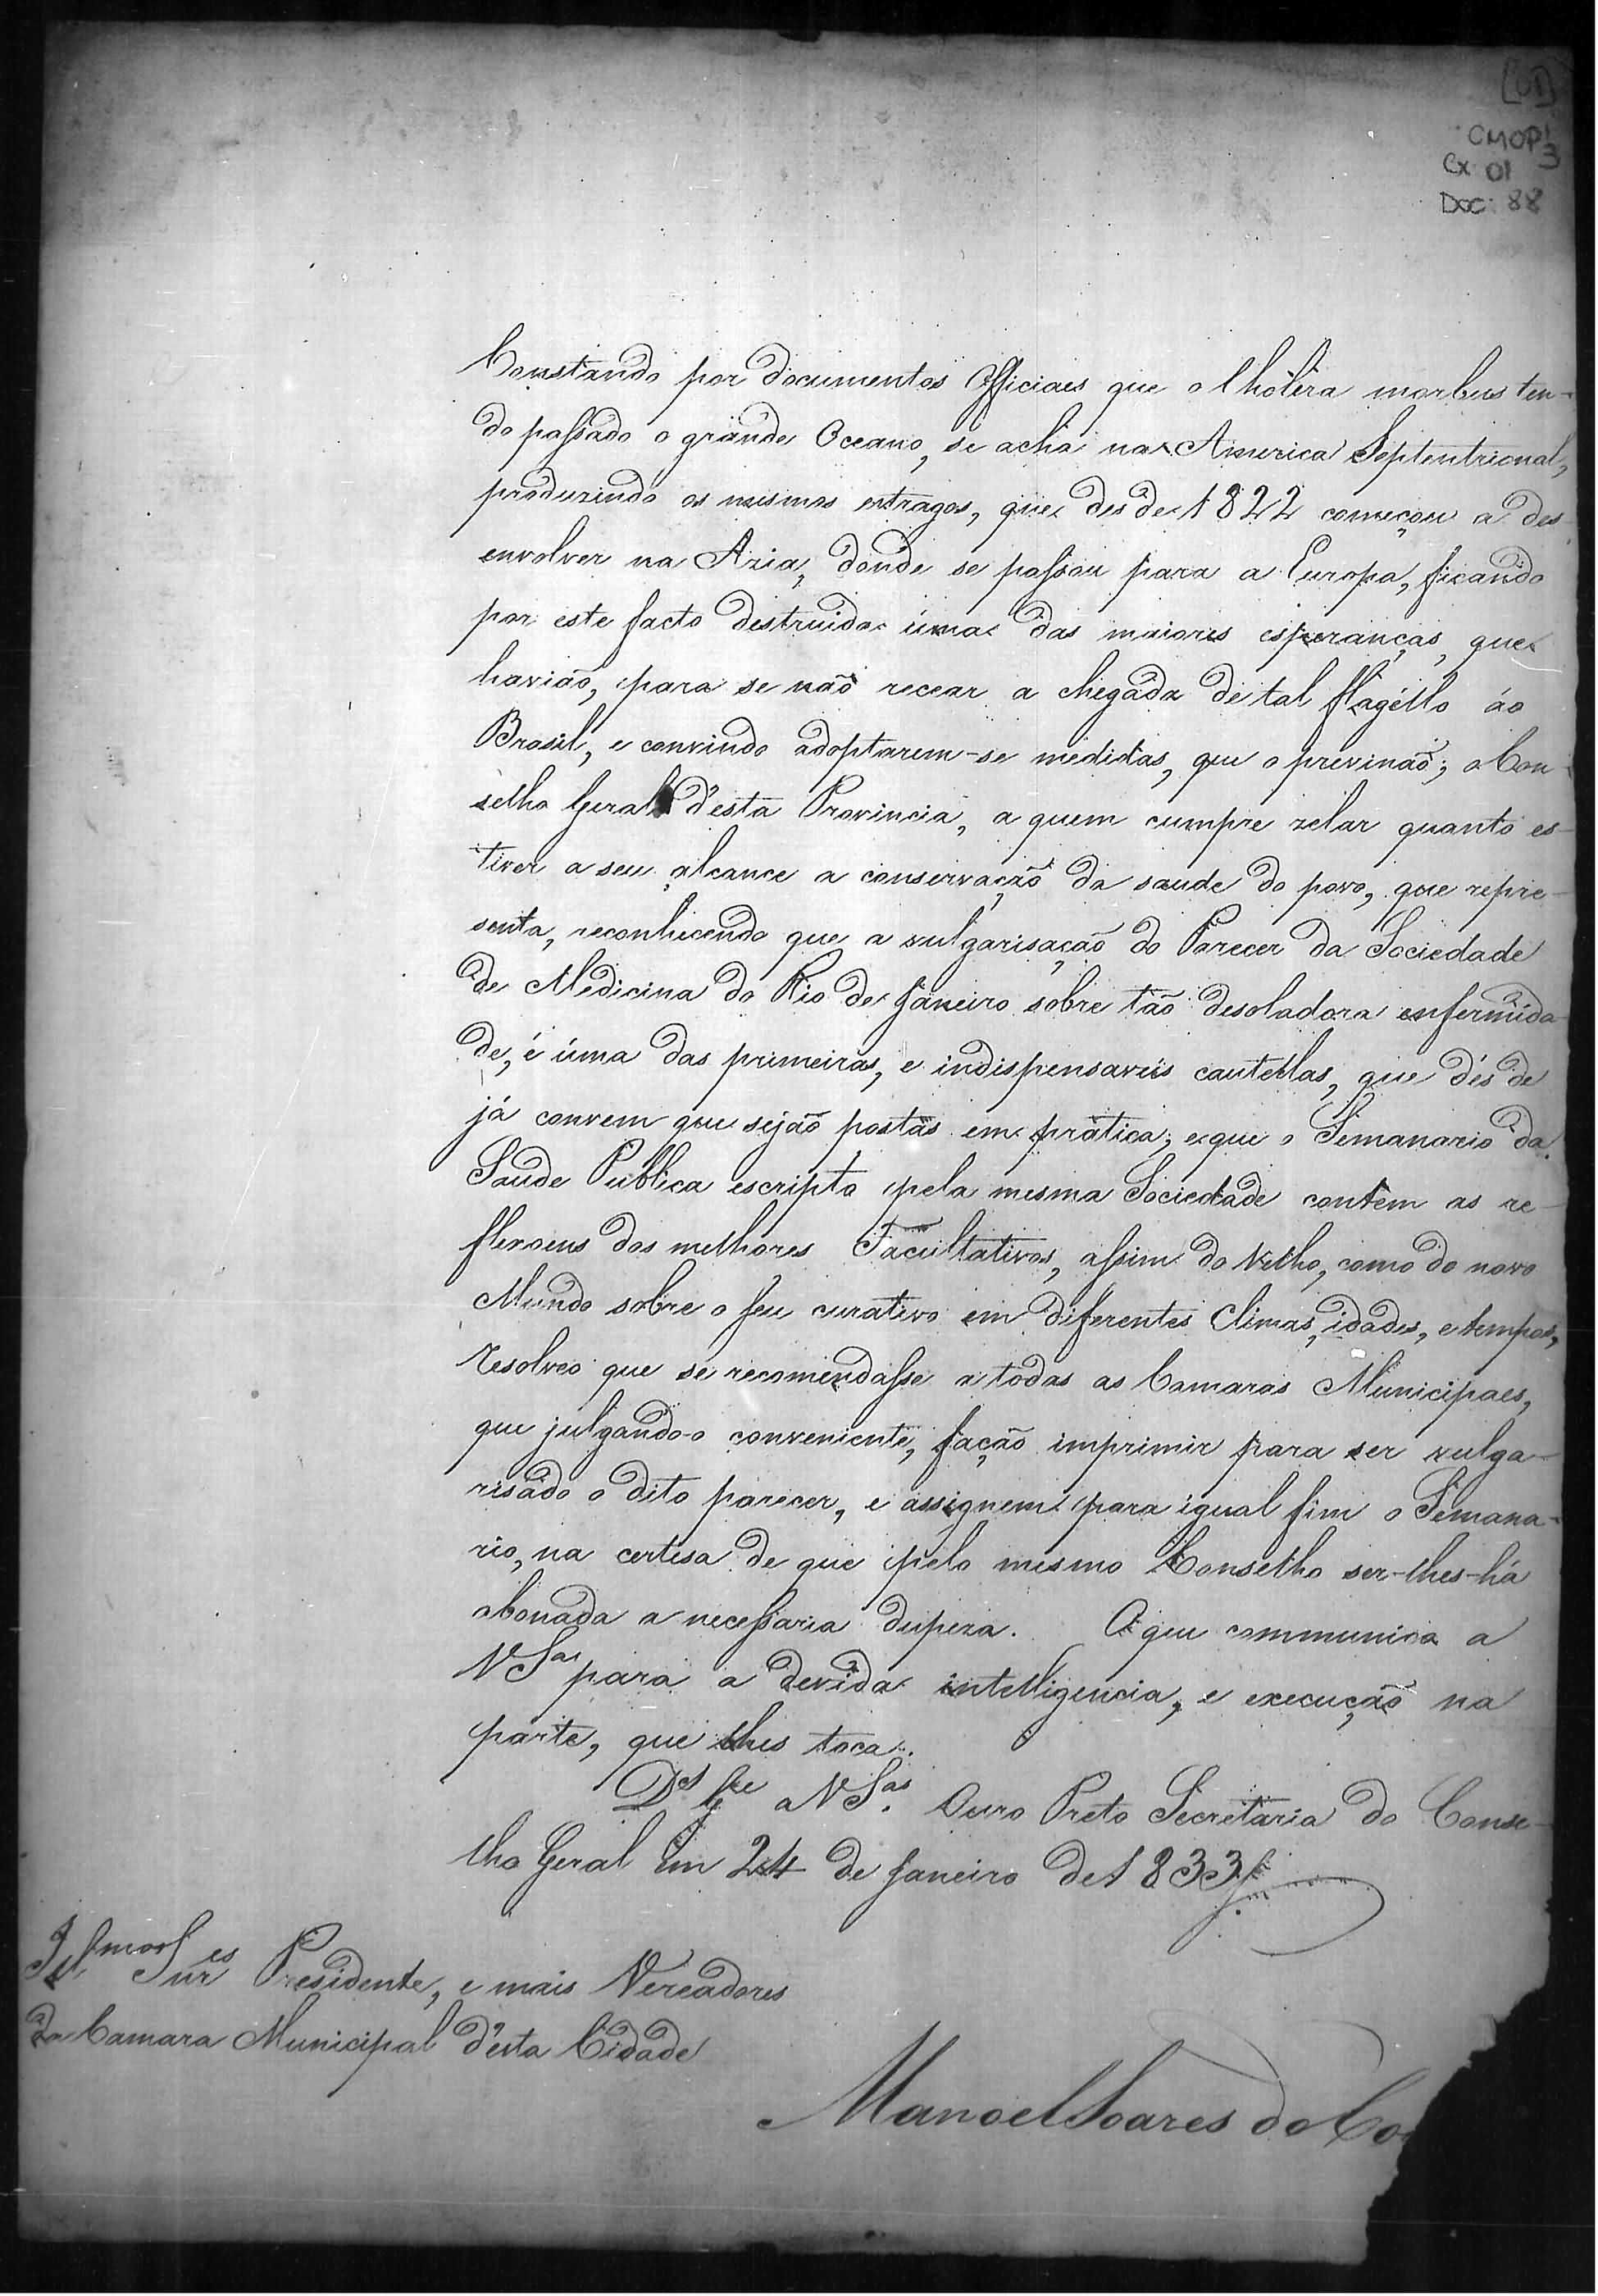 [01]
CMOP 3
Cx 01
Doc. 88
Constando por documentos Officiaes que o Choléra morbus ten-
do passado o grande Oceano, se acha na America Septentrional,
produzindo os mesmos estragos, que des de 1822 começou a des-
envolver na Azia, donde se passou para a Europa, ficando
por este facto destruida uma das maiores esperanças, que
havião, para se não recear a chegada de tal flagéllo áo
Brasil, e convindo adoptarem-se medidas, que o previnão; o Con-
selho Geral d'esta Provincia, a quem cumpre zelar quanto es-
tiver a seu alcance a conservação da saude do povo, que repre-
senta, reconhecendo que a vulgarisação do Parecer da Sociedade
de Medicina do Rio de Janeiro sobre tão desoladora enfermida-
de, é úma das primeiras, e indispensaveis cautellas, que dés de
já convem que sejão postas em prática; e que o Semanario da
Saude Publica escripto pela mesma Sociedade contêm as re-
flexoens dos melhores Facultativos, assim do Velho, como do novo
Mundo sobre o seu curativo em diferentes Climas, idades, e tempos,
resolveo que se recomendasse a todas as Camaras Municipaes,
que julgando-o conveniente, fação imprimir para ser vulga-
risado o dito parecer, e assignem para igual fim o Semana-
rio, na certesa de que pelo mesmo Conselho ser-lhes-há
abonada a necessaria dispeza. O que communica a
VSas para a devida intelligencia, e execução na
parte, que lhes toca.
Ds Ge a VSas. Ouro Preto Secretaria do Conse-
lho Geral em 24 de Janeiro de 1833
Illmos Snres Presidente, e mais Vereadores
da Camara Municipal d'esta Cidade
Manoel Soares do Co